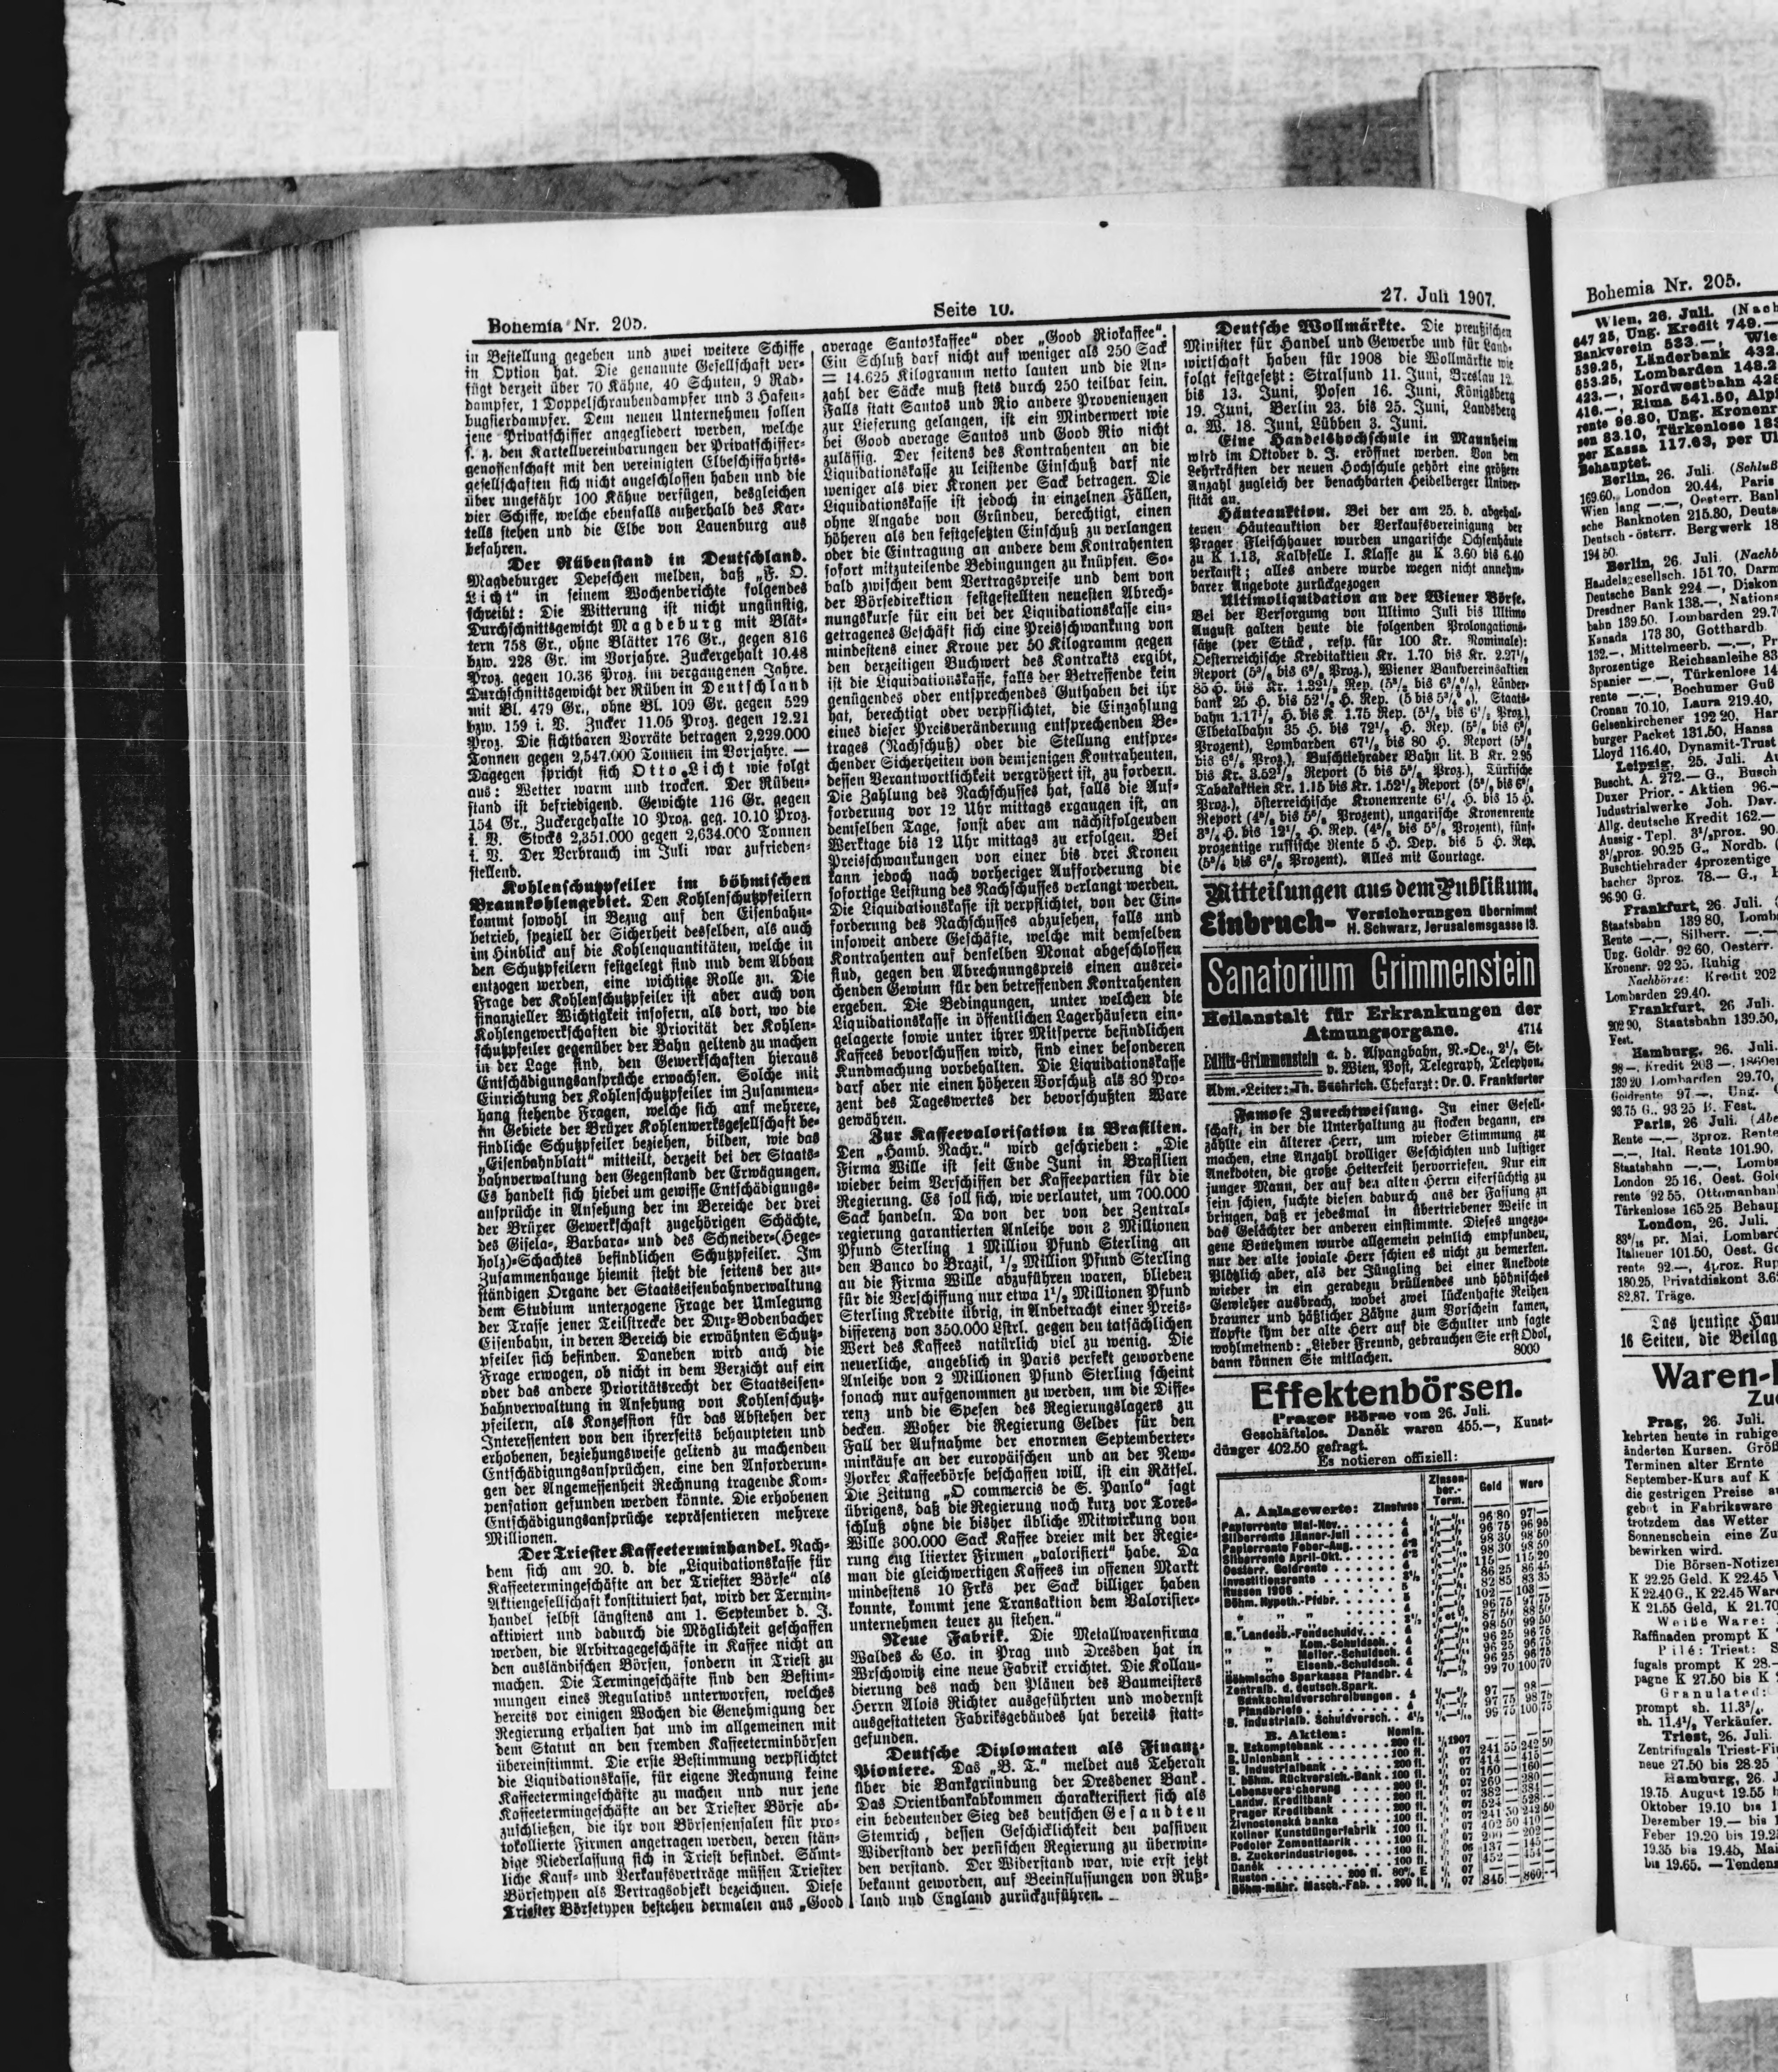 Bohemia Nr. 205.
Seite 10.
27. Juli 1907.
in Bestellung gegeben und zwei weitere Schiffe
in Option hat. Die genannte Gesellschaft ver-
fügt derzeit über 70 Kähne, 40 Schuten, 9 Rad-
dampfer, 1 Doppelschraubendampfer und 3 Hafen-
bugsierdampfer. Dem neuen Unternehmen sollen
jene Privatschiffer angegliedert werden, welche
s. z. den Kartellvereinbarungen der Privatschiffer-
genossenschaft mit den vereinigten Elbeschiffahrts-
gesellschaften sich nicht angeschlossen haben und die
über ungefähr 100 Kähne verfügen, desgleichen
vier Schiffe, welche ebenfalls außerhalb des Kar-
tells stehen und die Elbe von Lauenburg aus
befahren.
Der Rübenstand in Deutschland.
Magdeburger Depeschen melden, daß „F. O.
Licht“ in seinem Wochenberichte folgendes
schreibt: Die Witterung ist nicht ungünstig,
Durchschnittsgewicht Magdeburg mit Blät-
tern 758 Gr., ohne Blätter 176 Gr., gegen 816
bzw. 228 Gr. im Vorjahre. Zuckergehalt 10.48
Proz. gegen 10.36 Proz. im vergangenen Jahre.
Durchschnittsgewicht der Rüben in Deutschland
mit Bl. 479 Gr., ohne Bl. 109 Gr. gegen 529
bzw. 159 i. V. Zucker 11.05 Proz. gegen 12.21
Proz. Die sichtbaren Vorräte betragen 2,229.000
Tonnen gegen 2,547.000 Tonnen im Vorjahre. —
Dagegen spricht sich Otto Licht wie folgt
aus: Wetter warm und trocken. Der Rüben-
stand ist befriedigend. Gewichte 116 Gr. gegen
154 Gr., Zuckergehalte 10 Proz. geg. 10.10 Proz.
i. V. Stocks 2,351.000 gegen 2,634.000 Tonnen
i. V. Der Verbrauch im Juli war zufrieden-
stellend.
Kohlenschutzpfeiler im böhmischen
Braunkohlengebiet. Den Kohlenschutzpfeilern
kommt sowohl in Bezug auf den Eisenbahn-
betrieb, speziell der Sicherheit desselben, als auch
im Hinblick auf die Kohlenquantitäten, welche in
den Schutzpfeilern festgelegt sind und dem Abbau
entzogen werden, eine wichtige Rolle zu. Die
Frage der Kohlenschutzpfeiler ist aber auch von
finanzieller Wichtigkeit insofern, als dort, wo die
Kohlengewerkschaften die Priorität der Kohlen-
schutzpfeiler gegenüber der Bahn geltend zu machen
in der Lage sind, den Gewerkschaften hieraus
Entschädigungsansprüche erwachsen. Solche mit
Einrichtung der Kohlenschutzpfeiler im Zusammen-
hang stehende Fragen, welche sich auf mehrere,
im Gebiete der Brüxer Kohlenwerksgesellschaft be-
findliche Schutzpfeiler beziehen, bilden, wie das
„Eisenbahnblatt“ mitteilt, derzeit bei der Staats-
bahnverwaltung den Gegenstand der Erwägungen.
Es handelt sich hiebei um gewisse Entschädigungs-
ansprüche in Ansehung der im Bereiche der drei
der Brüxer Gewerkschaft zugehörigen Schächte,
des Gisela-, Barbara- und des Schneider-(Hege-
holz)-Schachtes befindlichen Schutzpfeiler. Im
Zusammenhange hiemit steht die seitens der zu-
ständigen Organe der Staatseisenbahnverwaltung
dem Studium unterzogene Frage der Umlegung
der Trasse jener Teilstrecke der Dux-Bodenbacher
Eisenbahn, in deren Bereich die erwähnten Schutz-
pfeiler sich befinden. Daneben wird auch die
Frage erwogen, ob nicht in dem Verzicht auf ein
oder das andere Prioritätsrecht der Staatseisen-
bahnverwaltung in Ansehung von Kohlenschutz-
pfeilern, als Konzession für das Abstehen der
Interessenten von den ihrerseits behaupteten und
erhobenen, beziehungsweise geltend zu machenden
Entschädigungsansprüchen, eine den Anforderun-
gen der Angemessenheit Rechnung tragende Kom-
pensation gefunden werden könnte. Die erhobenen
Entschädigungsansprüche repräsentieren mehrere
Millionen.
Der Triester Kaffeeterminhandel. Nach-
dem sich am 20. d. die „Liquidationskasse für
Kaffeetermingeschäfte an der Triester Börse“ als
Aktiengesellschaft konstituiert hat, wird der Termin-
handel selbst längstens am 1. September d. J.
aktiviert und dadurch die Möglichkeit geschaffen
werden, die Arbitragegeschäfte in Kaffee nicht an
den ausländischen Börsen, sondern in Triest zu
machen. Die Termingeschäfte sind den Bestim-
mungen eines Regulativs unterworfen, welches
bereits vor einigen Wochen die Genehmigung der
Regierung erhalten hat und im allgemeinen mit
dem Statut an den fremden Kaffeeterminbörsen
übereinstimmt. Die erste Bestimmung verpflichtet
die Liquidationskasse, für eigene Rechnung keine
Kaffeetermingeschäfte zu machen und nur jene
Kaffeetermingeschäfte an der Triester Börse ab-
zuschließen, die ihr von Börsensensalen für pro-
tokollierte Firmen angetragen werden, deren stän-
dige Niederlassung sich in Triest befindet. Sämt-
liche Kauf- und Verkaufsverträge müssen Triester
Börsetypen als Vertragsobjekt bezeichnen. Diese
Triester Börsetypen bestehen dermalen aus „Good
average Santoskaffee“ oder „Good Riokaffee“.
Ein Schluß darf nicht auf weniger als 250 Sack
= 14.625 Kilogramm netto lauten und die An-
zahl der Säcke muß stets durch 250 teilbar sein.
Falls statt Santos und Rio andere Provenienzen
zur Lieferung gelangen, ist ein Minderwert wie
bei Good average Santos und Good Rio nicht
zulässig. Der seitens des Kontrahenten an die
Liquidationskasse zu leistende Einschuß darf nie
weniger als vier Kronen per Sack betragen. Die
Liquidationskasse ist jedoch in einzelnen Fällen,
ohne Angabe von Gründen, berechtigt, einen
höheren als den festgesetzten Einschuß zu verlangen
oder die Eintragung an andere dem Kontrahenten
sofort mitzuteilende Bedingungen zu knüpfen. So-
bald zwischen dem Vertragspreise und dem von
der Börsedirektion festgestellten neuesten Abrech-
nungskurse für ein bei der Liquidationskasse ein-
getragenes Geschäft sich eine Preisschwankung von
mindestens einer Krone per 50 Kilogramm gegen
den derzeitigen Buchwert des Kontrakts ergibt,
ist die Liquidationskasse, falls der Betreffende kein
genügendes oder entsprechendes Guthaben bei ihr
hat, berechtigt oder verpflichtet, die Einzahlung
eines dieser Preisveränderung entsprechenden Be-
trages (Nachschuß) oder die Stellung entspre-
chender Sicherheiten von demjenigen Kontrahenten,
dessen Verantwortlichkeit vergrößert ist, zu fordern.
Die Zahlung des Nachschusses hat, falls die Auf-
forderung vor 12 Uhr mittags ergangen ist, an
demselben Tage, sonst aber am nächstfolgenden
Werktage bis 12 Uhr mittags zu erfolgen. Bei
Preisschwankungen von einer bis drei Kronen
kann jedoch nach vorheriger Aufforderung die
sofortige Leistung des Nachschusses verlangt werden.
Die Liquidationskasse ist verpflichtet, von der Ein-
forderung des Nachschusses abzusehen, falls und
insoweit andere Geschäfte, welche mit demselben
Kontrahenten auf denselben Monat abgeschlossen
sind, gegen den Abrechnungspreis einen ausrei-
chenden Gewinn für den betreffenden Kontrahenten
ergeben. Die Bedingungen, unter welchen die
Liquidationskasse in öffentlichen Lagerhäusern ein-
gelagerte sowie unter ihrer Mitsperre befindlichen
Kaffees bevorschussen wird, sind einer besonderen
Kundmachung vorbehalten. Die Liquidationskasse
darf aber nie einen höheren Vorschuß als 80 Pro-
zent des Tageswertes der bevorschußten Ware
gewähren.
Zur Kaffeevalorisation in Brasilien.
Den „Hamb. Nachr.“ wird geschrieben: „Die
Firma Wille ist seit Ende Juni in Brasilien
wieder beim Verschiffen der Kaffeepartien für die
Regierung. Es soll sich, wie verlautet, um 700.000
Sack handeln. Da von der von der Zentral-
regierung garantierten Anleihe von 3 Millionen
Pfund Sterling 1 Million Pfund Sterling an
den Banco do Brazil, 1/2 Million Pfund Sterling
an die Firma Wille abzuführen waren, blieben
für die Verschiffung nur etwa 1 1/2 Millionen Pfund
Sterling Kredite übrig, in Anbetracht einer Preis-
differenz von 350.000 Lstrl. gegen den tatsächlichen
Wert des Kaffees natürlich viel zu wenig. Die
neuerliche, angeblich in Paris perfekt gewordene
Anleihe von 2 Millionen Pfund Sterling scheint
sonach nur aufgenommen zu werden, um die Diffe-
renz und die Spesen des Regierungslagers zu
decken. Woher die Regierung Gelder für den
Fall der Aufnahme der enormen Septemberter-
minkäufe an der europäischen und an der New-
Yorker Kaffeebörse beschaffen will, ist ein Rätsel.
Die Zeitung „O commercio de S. Paulo“ sagt
übrigens, daß die Regierung noch kurz vor Tores-
schluß ohne die bisher übliche Mitwirkung von
Wille 300.000 Sack Kaffee dreier mit der Regie-
rung eng liierter Firmen „valorisiert“ habe. Da
man die gleichwertigen Kaffees im offenen Markt
mindestens 10 Frks per Sack billiger haben
konnte, kommt jene Transaktion dem Valorisier-
unternehmen teuer zu stehen.“
Neue Fabrik. Die Metallwarenfirma
Waldes & Co. in Prag und Dresden hat in
Wrschowitz eine neue Fabrik errichtet. Die Kollau-
dierung des nach den Plänen des Baumeisters
Herrn Alois Richter ausgeführten und modernst
ausgestatteten Fabriksgebäudes hat bereits statt-
gefunden.
Deutsche Diplomaten als Finanz-
Pioniere. Das „B. T.“ meldet aus Teheran
über die Bankgründung der Dresdener Bank.
Das Orientbankabkommen charakterisiert sich als
ein bedeutender Sieg des deutschen Gesandten
Stemrich, dessen Geschicklichkeit den passiven
Widerstand der persischen Regierung zu überwin-
den verstand. Der Widerstand war, wie erst jetzt
bekannt geworden, auf Beeinflussungen von Ruß-
land und England zurückzuführen.
Deutsche Wollmärkte. Die preußischen
Minister für Handel und Gewerbe und für Land-
wirtschaft haben für 1908 die Wollmärkte wie
folgt festgesetzt: Stralsund 11. Juni, Breslau 12.
bis 13. Juni, Posen 16. Juni, Königsberg
19. Juni, Berlin 23. bis 25. Juni, Landsberg
a. W. 18. Juni, Lübben 3. Juni.
Eine Handelshochschule in Mannheim
wird im Oktober d. J. eröffnet werden. Von den
Lehrkräften der neuen Hochschule gehört eine größere
Anzahl zugleich der benachbarten Heidelberger Univer-
sität an.
Häuteauktion. Bei der am 25. d. abgehal-
tenen Häuteauktion der Verkaufsvereinigung der
Prager Fleischhauer wurden ungarische Ochsenhäute
zu K 1.13, Kalbfelle I. Klasse zu K 3.60 bis 6.40
verkauft; alles andere wurde wegen nicht annehm-
barer Angebote zurückgezogen
Ultimoliquidation an der Wiener Börse.
Bei der Versorgung von Ultimo Juli bis Ultimo
August galten heute die folgenden Prolongations-
sätze (per Stück, resp. für 100 Kr. Nominale):
Oesterreichische Kreditaktien Kr. 1.70 bis Kr. 2.27
Report Wiener Bankvereinsaktien
Alles mit Courtage.
Mitteilungen aus dem Publikum.
Einbruch- Versicherungen übernimmt
H. Schwarz, Jerusalemsgasse 13.
Sanatorium Grimmenstein
Heilanstalt für Erkrankungen der
Atmungsorgane. 4714
Edlitz-Grimmenstein a. d. Aspangbahn, N.-Oe., 2 1/2 St.
v. Wien, Post, Telegraph, Telephon.
Adm.-Leiter: Th. Bachrich. Chefarzt: Dr. O. Frankfurter
Famose Zurechtweisung. In einer Gesell-
schaft, in der die Unterhaltung zu stocken begann, er-
zählte ein älterer Herr, um wieder Stimmung zu
machen, eine Anzahl drolliger Geschichten und lustiger
Anekdoten, die große Heiterkeit hervorriefen. Nur ein
junger Mann, der auf den alten Herrn eifersüchtig zu
sein schien, suchte diesen dadurch aus der Fassung zu
bringen, daß er jedesmal in übertriebener Weise in
das Gelächter der anderen einstimmte. Dieses ungezo-
gene Benehmen wurde allgemein peinlich empfunden,
nur der alte joviale Herr schien es nicht zu bemerken.
Plötzlich aber, als der Jüngling bei einer Anekdote
wieder in ein geradezu brüllendes und höhnisches
Gewieher ausbrach, wobei zwei lückenhafte Reihen
brauner und häßlicher Zähne zum Vorschein kamen,
klopfte ihm der alte Herr auf die Schulter und sagte
wohlmeinend: „Lieber Freund, gebrauchen Sie erst Odol,
dann können Sie mitlachen. 8000
Effektenbörsen.
Prager Börse vom 26. Juli.
Geschäftslos. Daněk waren 455.—, Kunst-
dünger 402.50 gefragt.
Es notieren offiziell:
A. Anlagewerte: Zinsfuss
Zinsen-
ber.-
Term.
Geld
Ware
Papierrente Mai-Nov.
Silberrente Jänner-Juli
Papierrente Feber-Aug.
Silberrente April-Okt.
Oesterr. Goldrente
Investitionsrente
Russen 1906
Böhm. Hypoth.-Pfdbr.
B. Landesb.-Fondschuldv.
Kom.-Schuldsch.
Melior.-Schuldsch.
Eisenb.-Schuldsch.
Böhmische Sparkassa Pfandbr. 4
Zentralb. d. deutsch. Spark.
Bankschuldverschreibungen
Pfandbriefe
B. Industrialb. Schuldversch.
B. Aktien: Nomin.
B. Eskomptebank
B. Unionbank
B. Industrialbank
I. böhm. Rückversich.-Bank
Lebensversicherung
Landw. Kreditbank
Prager Kreditbank
Živnostenská banka
Koliner Kunstdüngerfabrik
Podoler Zementfabrik
B. Zuckerindustrieges.
Daněk
Ruston
Böhm-mähr. Masch.-Fab.
Bohemia Nr. 205.
Wien, 26. Juli. (Nach
647 25, Ung. Kredit 749.—
Bankverein 533.—, Wie
539.25, Länderbank 432.
653.25, Lombarden 148.2
423.—, Nordwestbahn 428
416.—, Rima 541.50, Alpi
rente 96.80, Ung. Kronenr
sen 83.10, Türkenlose 183
per Kassa 117.63, per Ul
Behauptet.
Berlin, 26. Juli. (Schluß
169.60, London 20.44, Paris
Wien lang —.—, Oesterr. Bank
sche Banknoten 215.30, Deuts
Deutsch-österr. Bergwerk 18
194 50.
Berlin, 26. Juli. (Nachb
Handelsgesellsch. 151.70, Darm
Deutsche Bank 224.—, Diskon
Dresdner Bank 138.—, Nation
bahn 139.50. Lombarden 29.7
Kanada 173 30, Gotthardb.
132.—, Mittelmeerb. —.—, Pr
3prozentige Reichsanleihe 83
Spanier —.—, Türkenlose 14
rente —.—, Bochumer Guß
Cronau 70.10, Laura 219.40,
Gelsenkirchener 192 20, Har
burger Packet 131.50, Hansa
Lloyd 116.40, Dynamit-Trust
Leipzig, 25. Juli. Au
Buscht. A. 272.— G., Busch
Duxer Prior.-Aktien 96.—
Industrialwerke Joh. Dav.
Allg. deutsche Kredit 162.—
Aussig-Tepl. 3 1/2proz. 90.
3 1/2proz. 90.25 G., Nordb. (
Buschtiehrader 4prozentige
bacher 3proz. 78.— G.,
96.90 G.
Frankfurt, 26. Juli. (
Staatsbahn 139 80, Lomb
Rente —.—, Silberr. —.—
Ung. Goldr. 92 60, Oesterr.
Kronenr. 92 25. Ruhig
Nachbörse: Kredit 202
Lombarden 29.40.
Frankfurt, 26 Juli.
202 90, Staatsbahn 139.50,
Fest.
Hamburg, 26. Juli.
98—, Kredit 203—, 1860er
139 20 Lombarden 29.70,
Goldrente 97—, Ung. G
93 75 G., 93 25 B. Fest.
Paris, 26 Juli. (Abe
Rente —.—, 3proz. Rente
—.—, Ital. Rente 101.90,
Staatsbahn —.—, Lomb
London 25 16, Oest. Gol
rente 92 55, Ottomanban
Türkenlose 165.25 Behaup
London, 26. Juli.
pr. Mai, Lombard
Italiener 101.50, Oest. Go
rente 92.—, 4proz. Rup
180.25, Privatdiskont 3.6
82.87. Träge.
Das heutige Hau
16 Seiten, die Beilag
Waren-
Zu
Prag, 26. Juli.
kehrten heute in ruhige
änderten Kursen. Größ
Terminen alter Ernte
September-Kurs auf K
die gestrigen Preise a
gebot in Fabriksware
trotzdem das Wetter
Sonnenschein eine Zu
bewirken wird.
Die Börsen-Notize
K 22.25 Geld, K 22.45 W
K 22.40 G., K 22.45 War
K 21.55 Geld, K 21.70
Weiße Ware:
Raffinaden prompt K
Pilé: Triest: S
fugals prompt K 28.—
pagne K 27.50 bis K
Granulated:
prompt sh. 11.3 3/4,
sh. 11.4 1/2 Verkäufer.
Triest, 26. Juli.
Zentrifugals Triest-Fi
neue 27.50 bis 28.25
Hamburg, 26. J
19.75 August 19.55
Oktober 19.10 bis 1
Dezember 19.— bis 1
Feber 19.20 bis 19.2
19.35 bis 19.45, Mai
bis 19.65. — Tendens